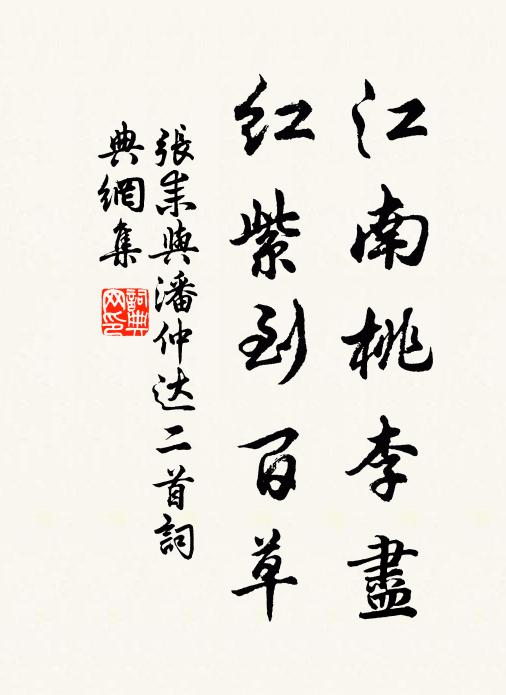 江南桃李盡
紅紫到百草
張耒與潘仲达二首詞
典網集
詞典
网印